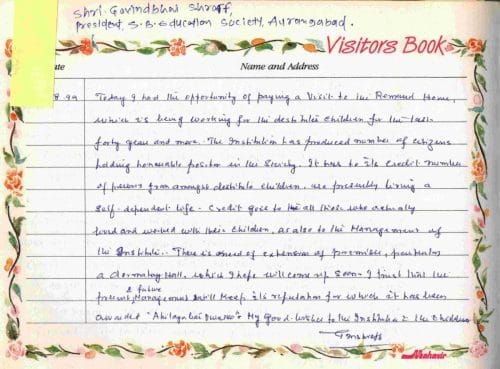 Shri. Govindbhai Shroff,
President, S.B. Education Society, Aurangabad.
Visitors Book
Name and Address
Today I had the opportunity of paying a visit to the Remand Home,
which is being working for the destitute children for the last
forty years and more. The Institution has produced number of citizens
holding honourable position in the Society. It has to its credit number
of persons from amongst destitute children, are presently living a
Self-dependent life. Credit goes to all those who actually
lived and worked with these children, as also to the Management of
the Institute. There is need of extension of premises, particular
a dormatory Hall, which I hope will come up soon. I find that the
present & future Management will keep its reputation for which it has been
awarded "Ahilyabai Award". My Good-wishes to the Institute & the children